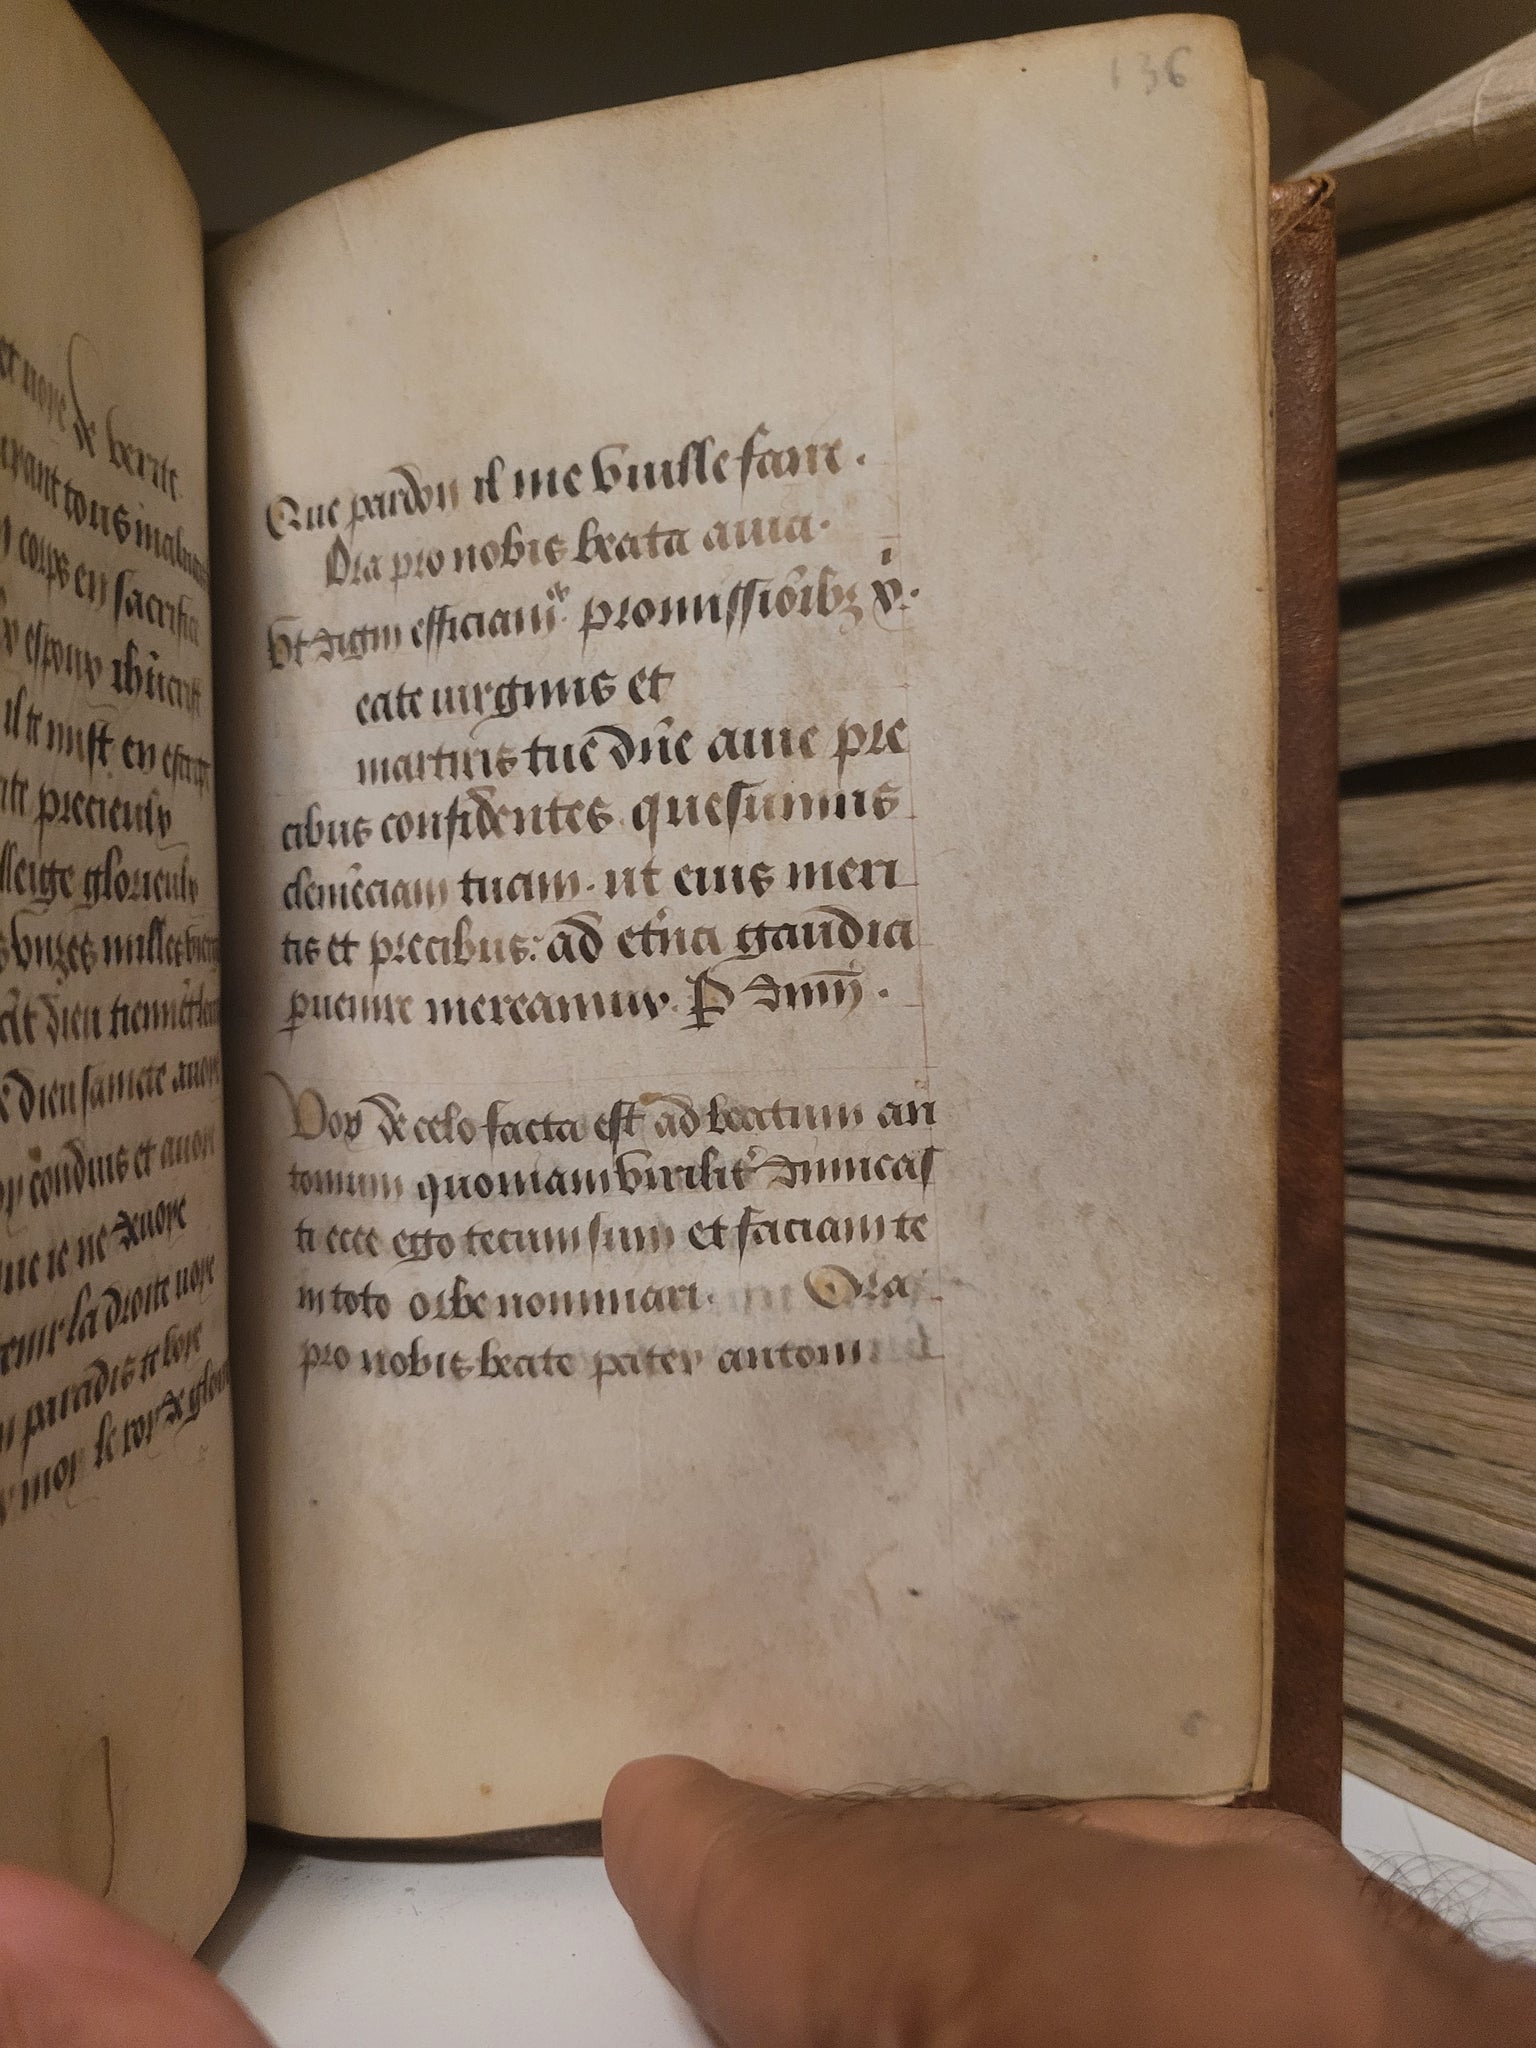 et voye de verite
tous
corps en sacrifi
espoux ihũcrist
il te mist en
precieulx
glorieulx
vnzes milles
dieu tiennẽt
dieu saincte auoye
conduis et auoye
que ie ne desuoye
la droite voye
paradis te voye
moy le roy de gloire
136
Que pardon il me vuille faire.
Ora pro nobis beata auia.
Vt digni efficiam᷑. promissiõibꝫ x̊.
eate uirginis et
martiris tue dñe auie pre
cibus confidentes quesumus
clemẽciam tuam. ut eius meri
tis et precibus: ad et̃na gaudia
ꝑuenire mereamur. P dnm̃.
Vox de celo facta est ad beatum an
tonium quoniam virilit̃ dimicas
ti ecce ego tecum sum et faciam te
in toto orbe nominari. Ora
pro nobis beate pater antoni